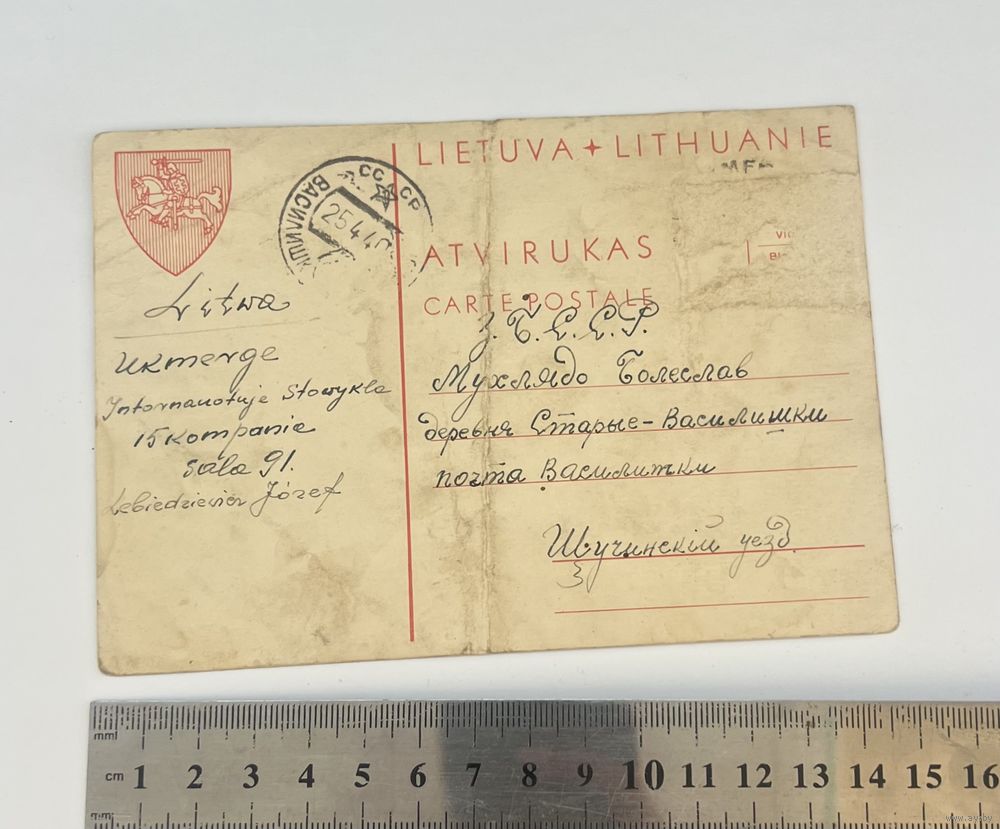 LIETUVA + LITHUANIE
СССР
ВАСИЛИШК
25.4.40
ATVIRUKAS
CARTE POSTALE
Litwa
Ukmerge
15 Kompanie
sala 91.
Lebiedziewicz Józef
З. Б. С. С. Р.
Мухлядо Болеслав
деревня Старые-Василишки
почта Василишки
Щучинскій уезд.
mm
cm 1 2 3 4 5 6 7 8 9 10 11 12 13 14 15 16
mm
www.ay.by